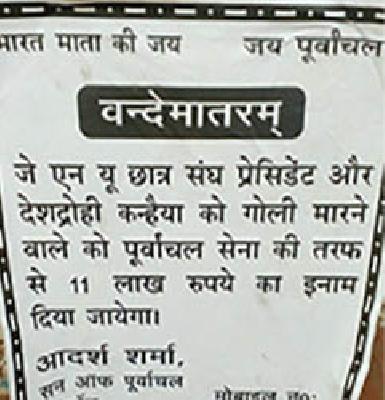 भारत माता की जय जय पूर्वांचल
वन्देमातरम्
जे एन यू छात्र संघ प्रेसिडेंट और
देशद्रोही कन्हैया को गोली मारने
वाले को पूर्वांचल सेना की तरफ
से 11 लाख रुपये का इनाम
दिया जायेगा।
आदर्श शर्मा,
सन ऑफ पूर्वांचल
मोबाइल नं०: